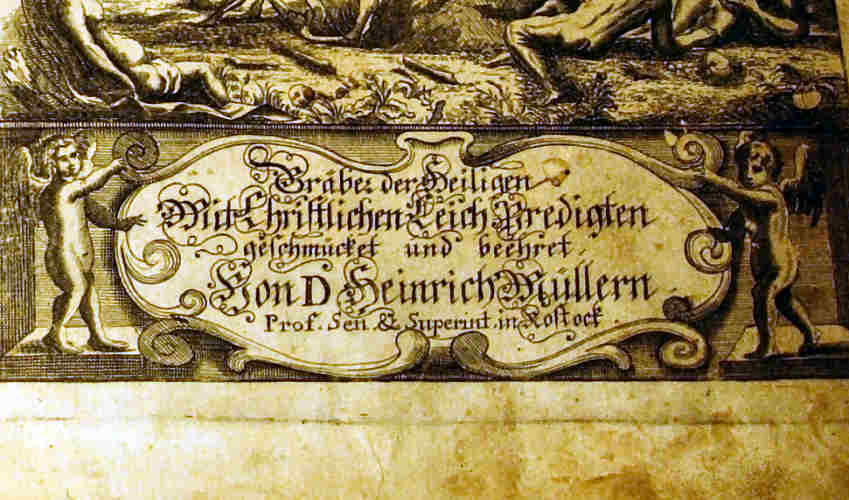 Gräber der Heiligen
Mit Christlichen Leich Predigten
geschmücket und beehret.
Von D Heinrich Müllern.
Prof. Sen. & Superint. in Rostock.